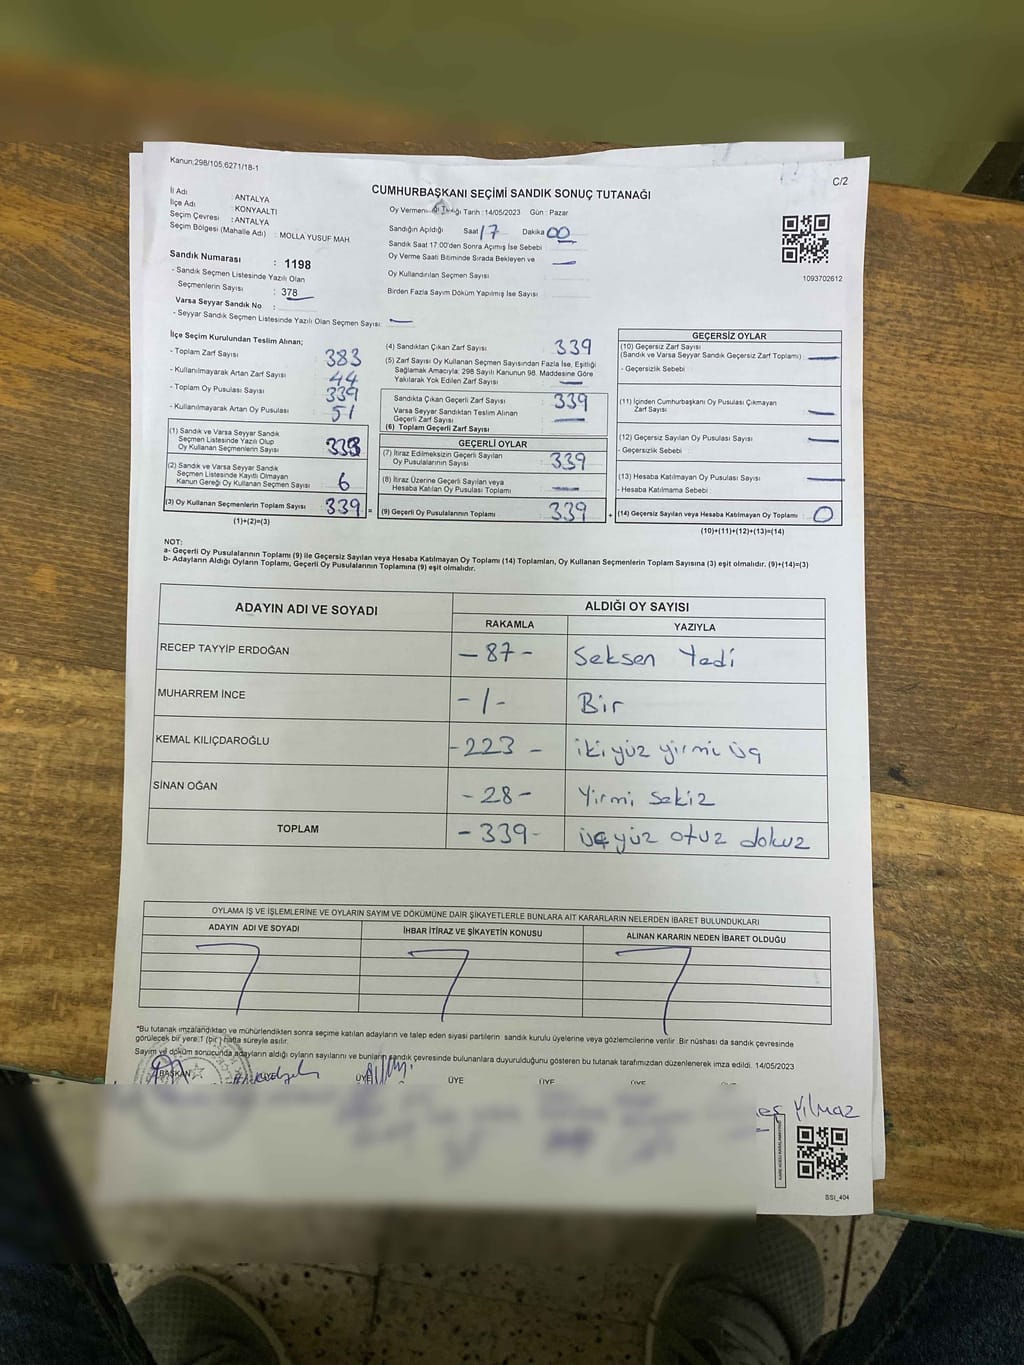 Kanun;298/105,6271/18-1
C/2
CUMHURBAŞKANI SEÇİMİ SANDIK SONUÇ TUTANAĞI
İl Adı : ANTALYA
İlçe Adı : KONYAALTI
Seçim Çevresi : ANTALYA
Seçim Bölgesi (Mahalle Adı) : MOLLA YUSUF MAH.
Sandık Numarası : 1198
- Sandık Seçmen Listesinde Yazılı Olan
Seçmenlerin Sayısı : 378
Varsa Seyyar Sandık No :
- Seyyar Sandık Seçmen Listesinde Yazılı Olan Seçmen Sayısı: —
Oy Vermenin Tarih : 14/05/2023 Gün : Pazar
Sandığın Açıldığı Saat 17 Dakika 00
Sandık Saat 17:00'den Sonra Açımış İse Sebebi :
Oy Verme Saati Bitiminde Sırada Bekleyen ve —
Oy Kullandırılan Seçmen Sayısı
Birden Fazla Sayım Döküm Yapılmış İse Sayısı :
1093702612
İlçe Seçim Kurulundan Teslim Alınan;
- Toplam Zarf Sayısı 383
- Kullanılmayarak Artan Zarf Sayısı 44
- Toplam Oy Pusulası Sayısı 339
- Kullanılmayarak Artan Oy Pusulası 51
(1) Sandık ve Varsa Seyyar Sandık
Seçmen Listesinde Yazılı Olup
Oy Kullanan Seçmenlerin Sayısı
(2) Sandık ve Varsa Seyyar Sandık
Seçmen Listesinde Kayıtlı Olmayan
Kanun Gereği Oy Kullanan Seçmen Sayısı 6
(3) Oy Kullanan Seçmenlerin Toplam Sayısı 339 =
(1)+(2)=(3)
(4) Sandıktan Çıkan Zarf Sayısı 339
(5) Zarf Sayısı Oy Kullanan Seçmen Sayısından Fazla İse, Eşitliği
Sağlamak Amacıyla; 298 Sayılı Kanunun 98. Maddesine Göre
Yakılarak Yok Edilen Zarf Sayısı —
Sandıkta Çıkan Geçerli Zarf Sayısı 339
Varsa Seyyar Sandıktan Teslim Alınan
Geçerli Zarf Sayısı —
(6) Toplam Geçerli Zarf Sayısı
GEÇERLİ OYLAR
(7) İtiraz Edilmeksizin Geçerli Sayılan
Oy Pusulalarının Sayısı 339
(8) İtiraz Üzerine Geçerli Sayılan veya
Hesaba Katılan Oy Pusulası Toplamı —
(9) Geçerli Oy Pusulalarının Toplamı 339 +
GEÇERSİZ OYLAR
(10) Geçersiz Zarf Sayısı
(Sandık ve Varsa Seyyar Sandık Geçersiz Zarf Toplamı) —
- Geçersizlik Sebebi :
(11) İçinden Cumhurbaşkanı Oy Pusulası Çıkmayan
Zarf Sayısı —
(12) Geçersiz Sayılan Oy Pusulası Sayısı —
- Geçersizlik Sebebi :
(13) Hesaba Katılmayan Oy Pusulası Sayısı —
- Hesaba Katılmama Sebebi :
(14) Geçersiz Sayılan veya Hesaba Katılmayan Oy Toplamı : 0
(10)+(11)+(12)+(13)=(14)
NOT:
a- Geçerli Oy Pusulalarının Toplamı (9) ile Geçersiz Sayılan veya Hesaba Katılmayan Oy Toplamı (14) Toplamları, Oy Kullanan Seçmenlerin Toplam Sayısına (3) eşit olmalıdır. (9)+(14)=(3)
b- Adayların Aldığı Oyların Toplamı, Geçerli Oy Pusulalarının Toplamına (9) eşit olmalıdır.
ADAYIN ADI VE SOYADI ALDIĞI OY SAYISI
RAKAMLA YAZIYLA
RECEP TAYYİP ERDOĞAN - 87 - Seksen Yedi
MUHARREM İNCE - 1 - Bir
KEMAL KILIÇDAROĞLU - 223 - iki yüz yirmi üç
SİNAN OĞAN - 28 - Yirmi sekiz
TOPLAM - 339 - üç yüz otuz dokuz
OYLAMA İŞ VE İŞLEMLERİNE VE OYLARIN SAYIM VE DÖKÜMÜNE DAİR ŞİKAYETLERLE BUNLARA AİT KARARLARIN NELERDEN İBARET BULUNDUKLARI
ADAYIN ADI VE SOYADI İHBAR İTİRAZ VE ŞİKAYETİN KONUSU ALINAN KARARIN NEDEN İBARET OLDUĞU
*Bu tutanak imzalandıktan ve mühürlendikten sonra seçime katılan adayların ve talep eden siyasi partilerin sandık kurulu üyelerine veya gözlemcilerine verilir. Bir nüshası da sandık çevresinde
görülecek bir yere 1 (bir) hafta süreyle asılır.
Sayım ve döküm sonucunda adayların aldığı oyların sayılarını ve bunların sandık çevresinde bulunanlara duyurulduğunu gösteren bu tutanak tarafımızdan düzenlenerek imza edildi. 14/05/2023
BAŞKAN ÜYE ÜYE ÜYE ÜYE
Yılmaz
SSI_404